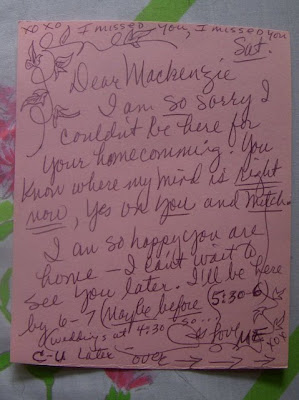 XOXO, I missed you, I missed you
Sat.
Dear Mackenzie
I am so sorry I
couldn't be here for
your homecomming. You
know where my mind is right
now, yes on you and Mitch.
I am so happy you are
home - I can't wait to
see you later. I'll be here
by 6-7 (Maybe before (5:30-6)
wedding at 4:30 so...
love ME
C-U Later - over → → → →
XOX